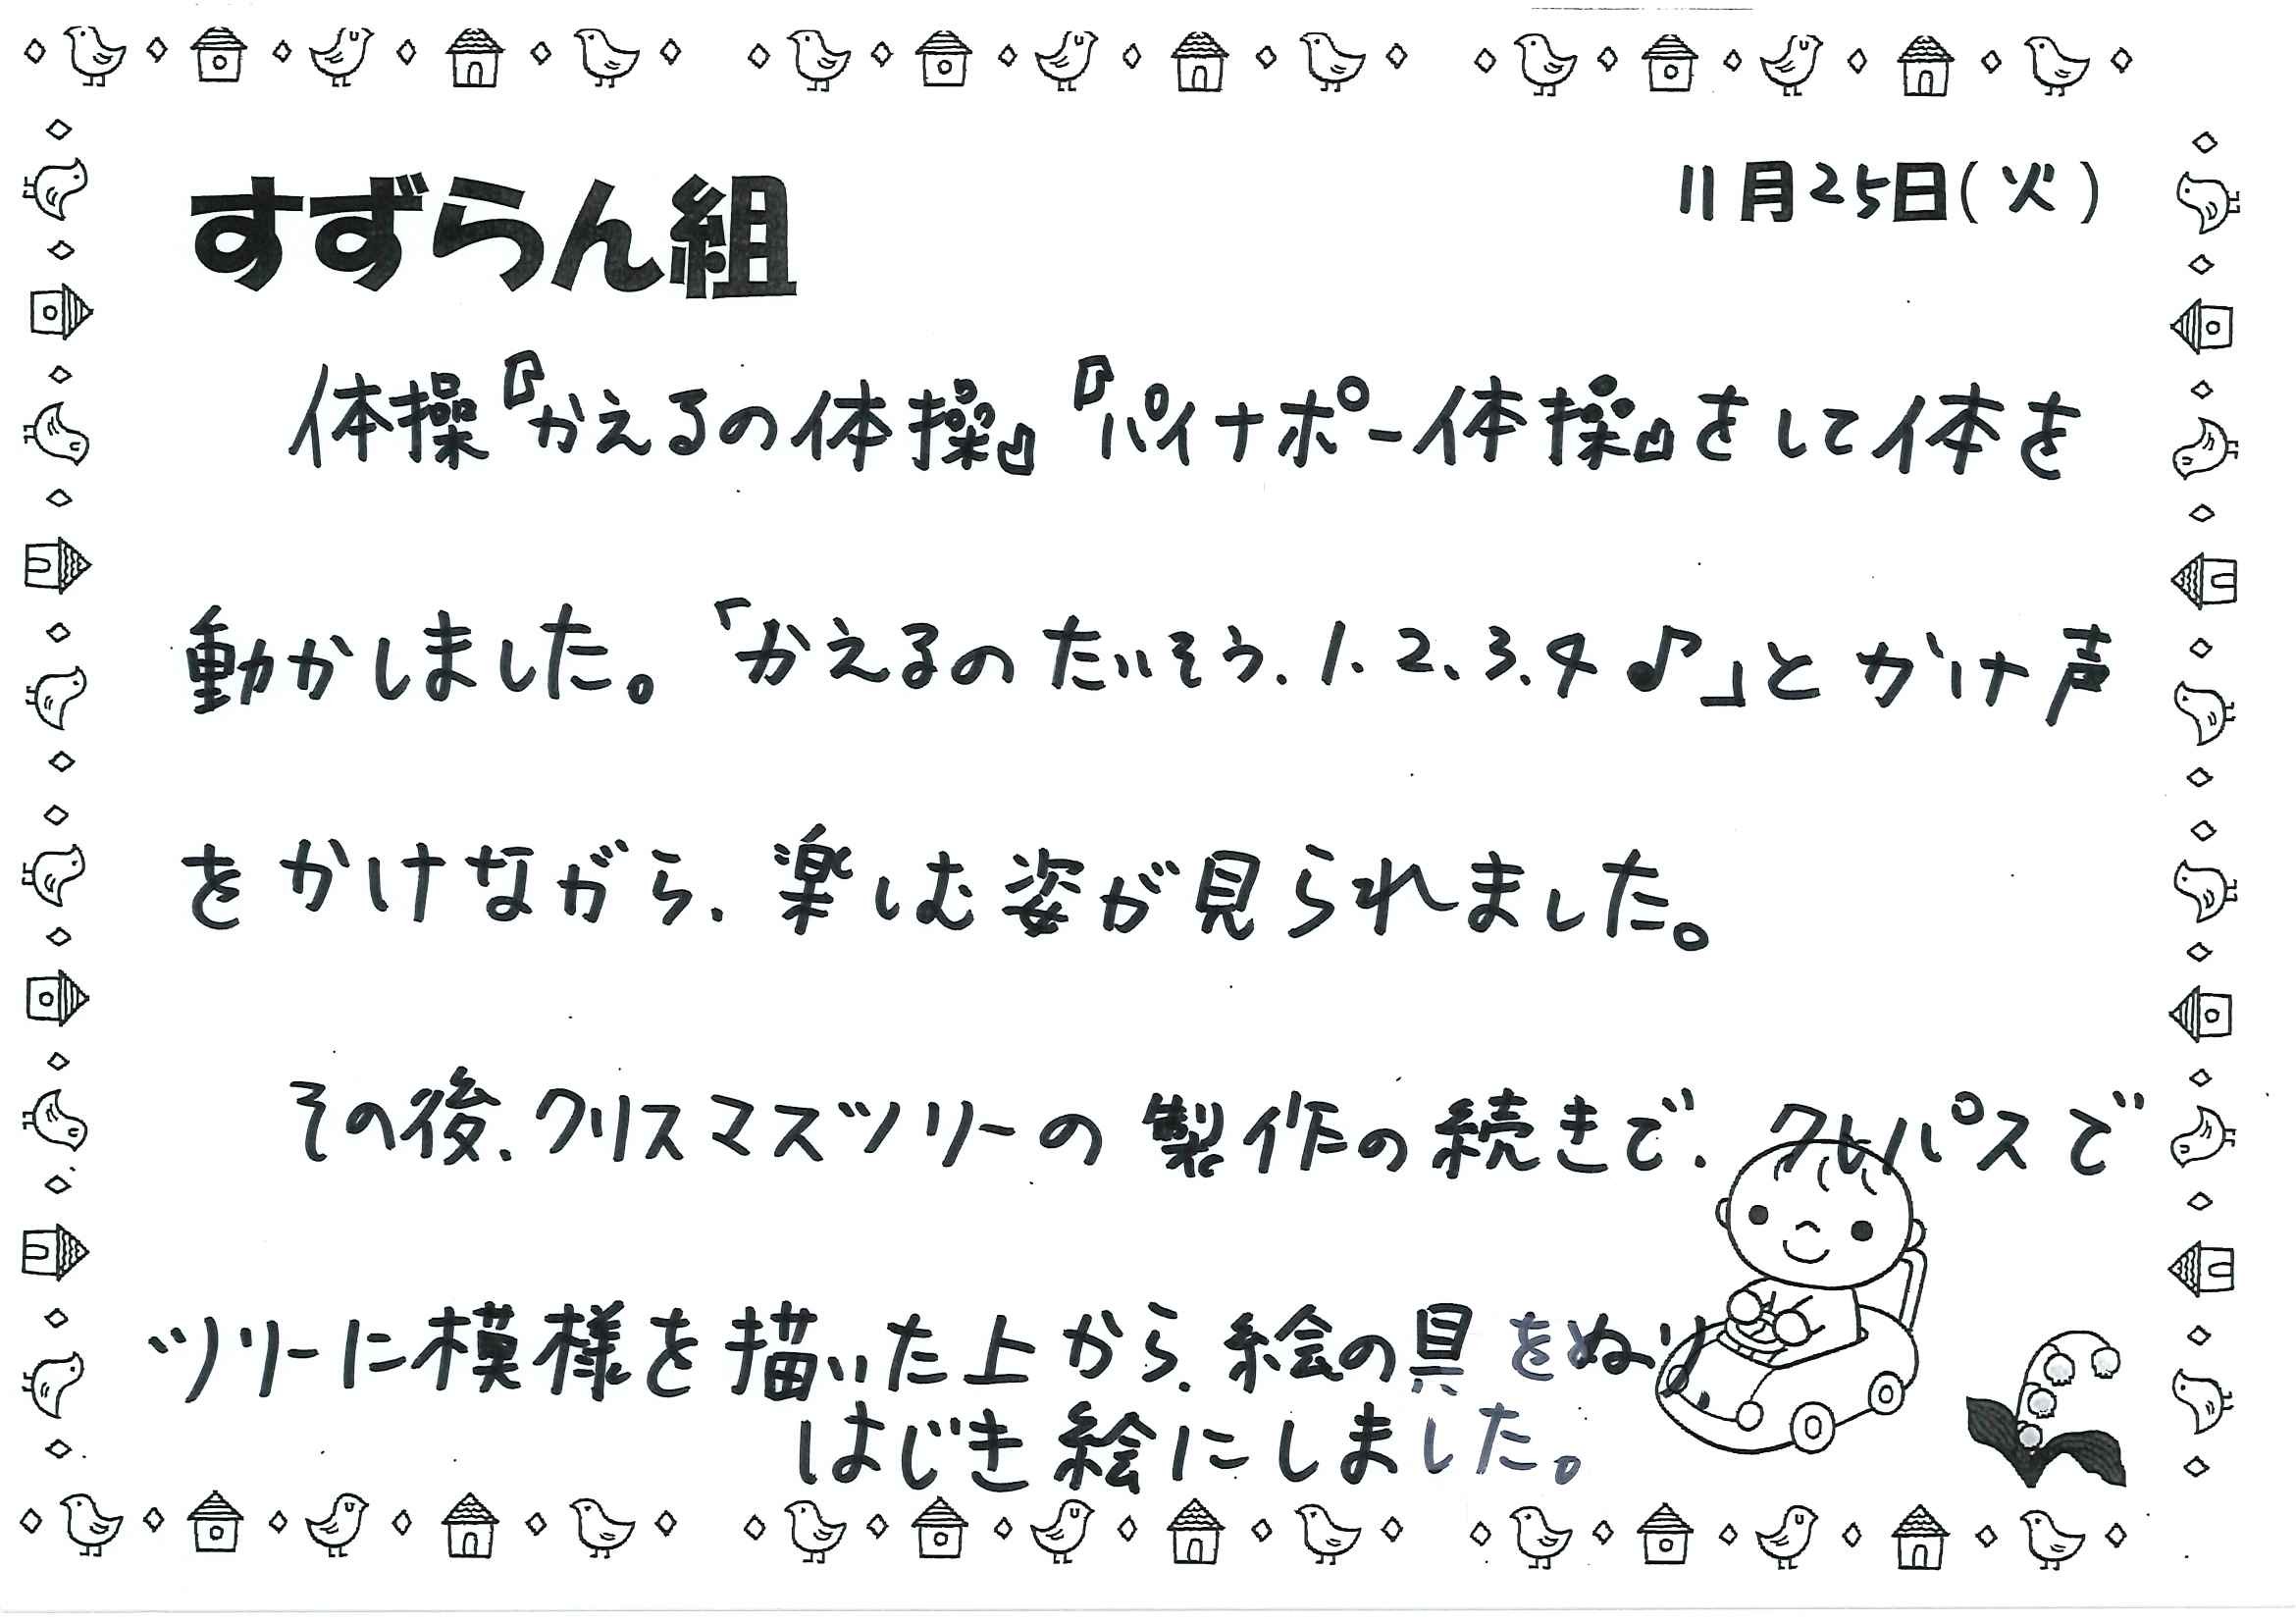 すずらん組
11月25日(火)
体操『かえるの体操』『パイナポー体操』をして体を
動かしました。「かえるのたいそう、1、2、3、4♪」とかけ声
をかけながら、楽しむ姿が見られました。
その後、クリスマスツリーの製作の続きで、クレパスで
ツリーに模様を描いた上から、絵の具をぬり、
はじき絵にしました。